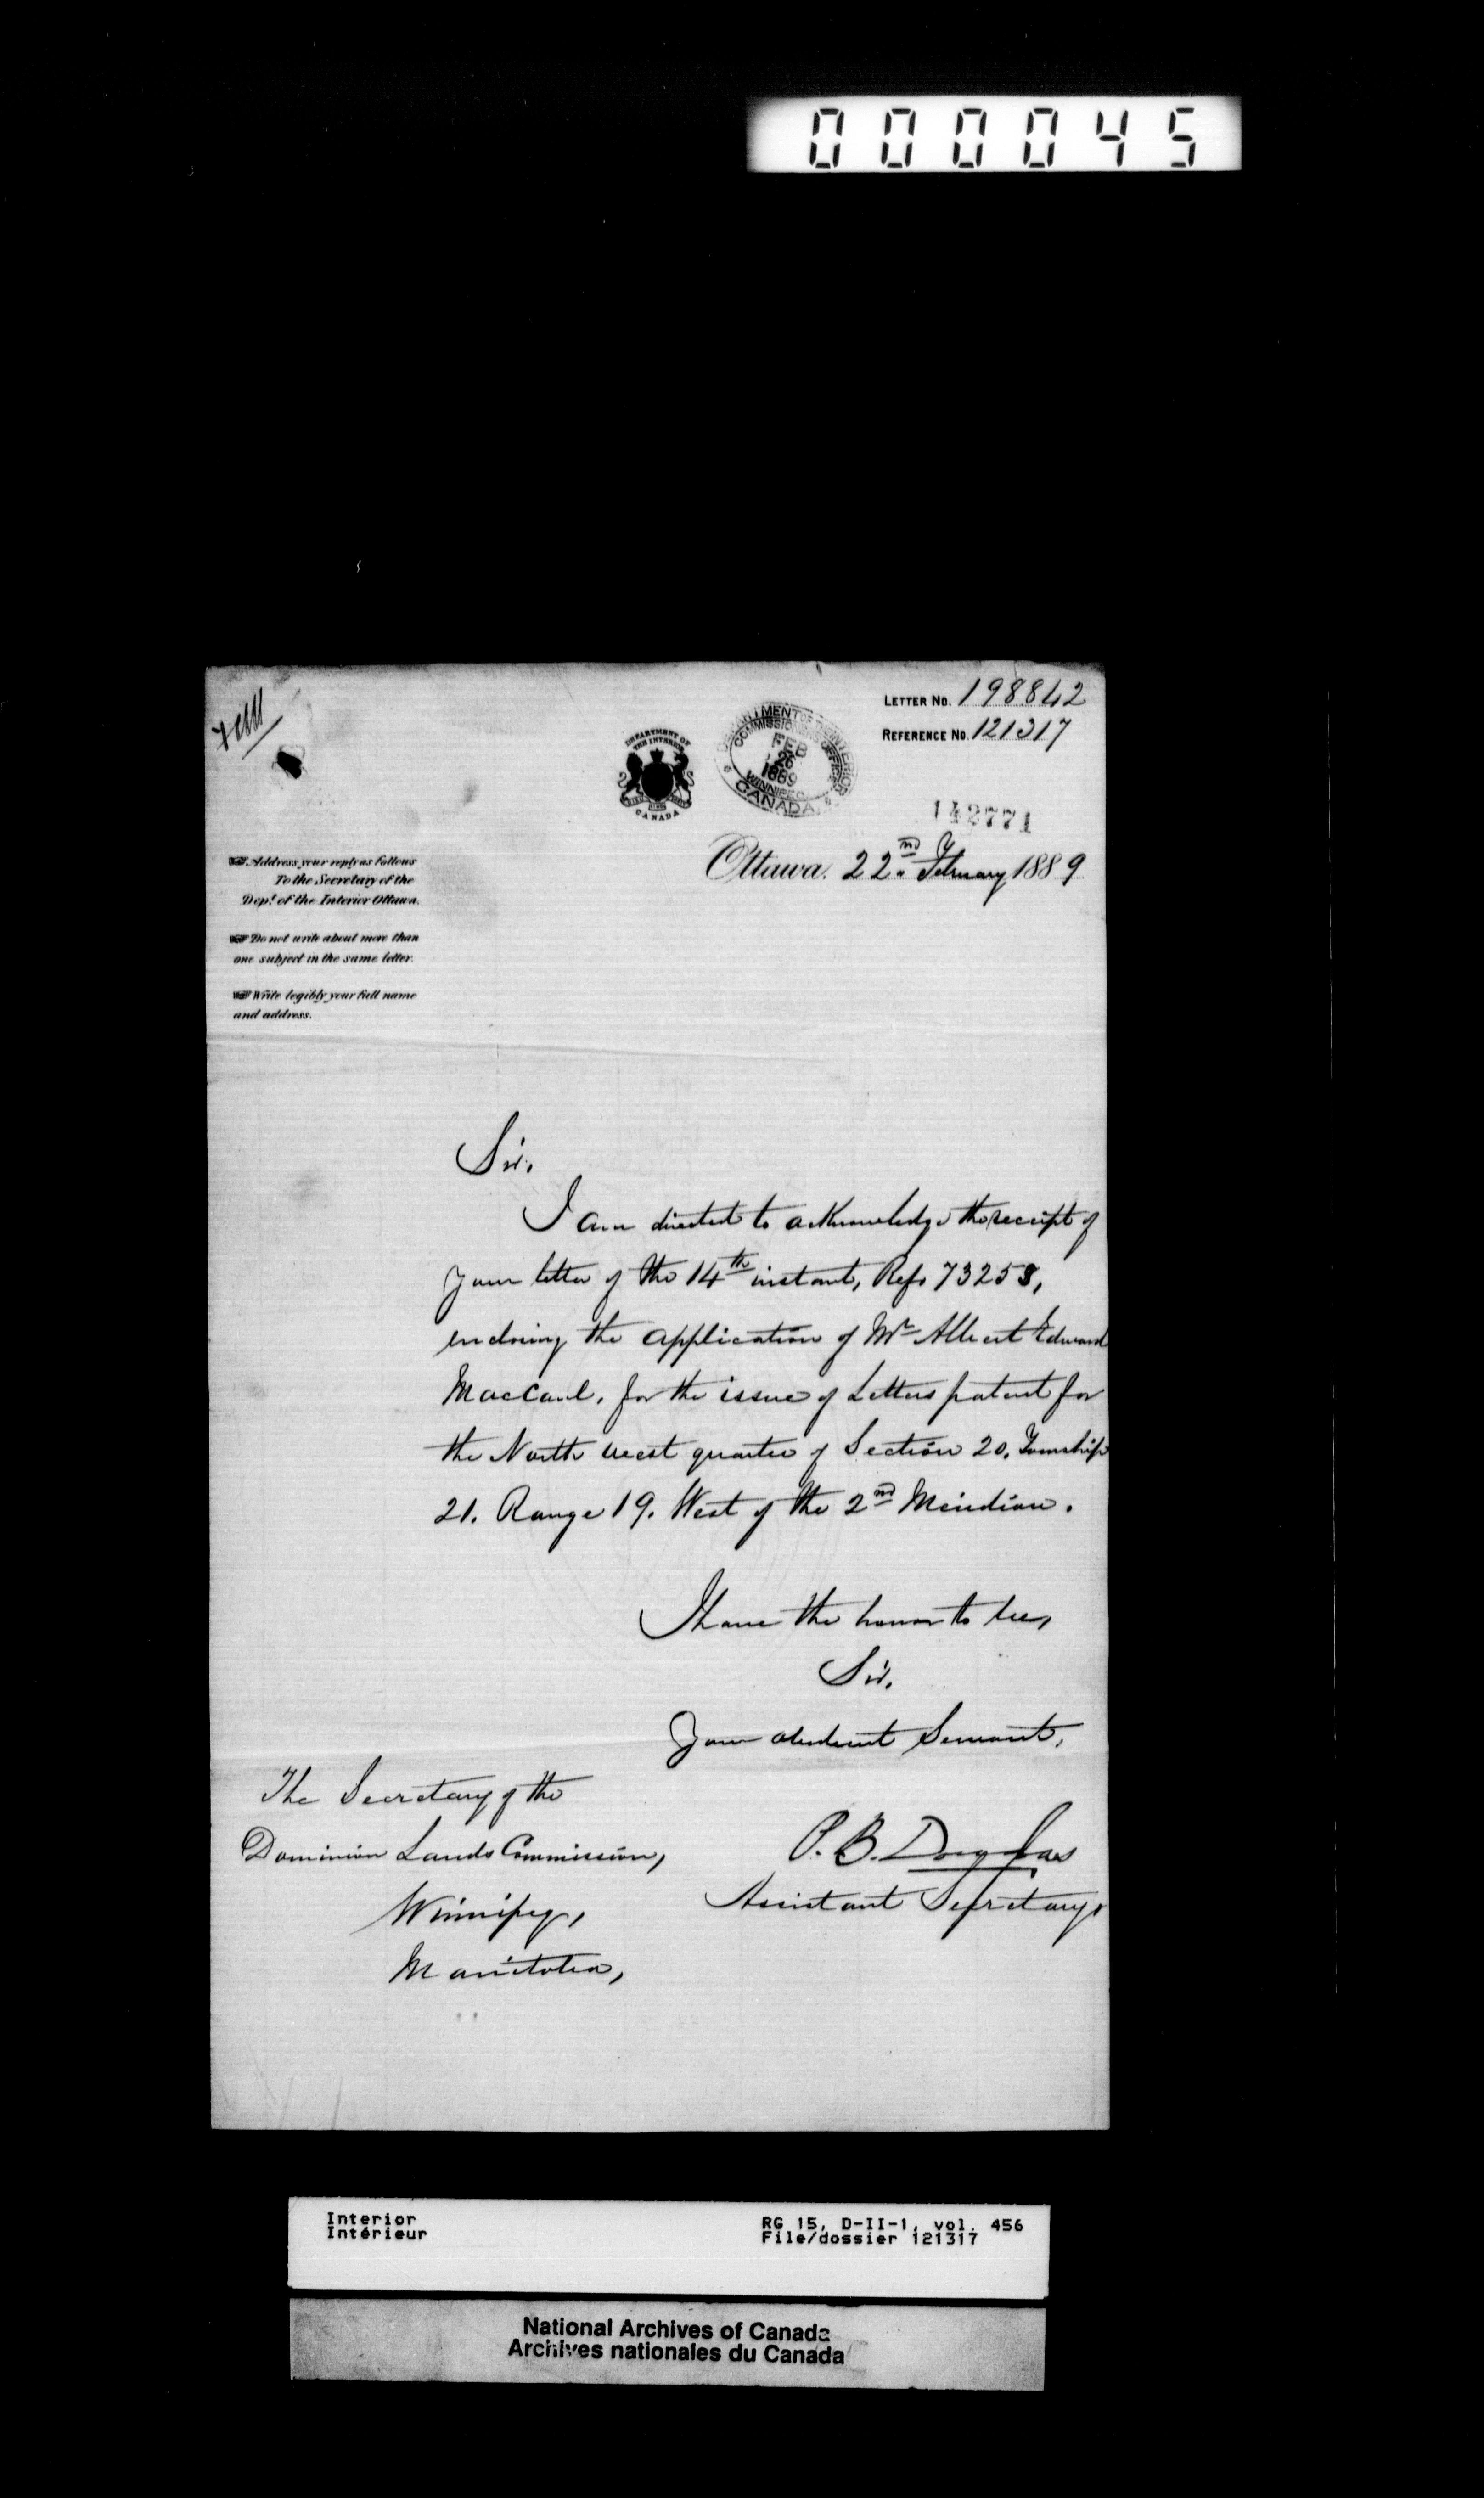 000045
LETTER NO. 198842
REFERENCE NO. 121317
DEPARTMENT OF
THE INTERIOR
CANADA
DEPARTMENT OF THE INTERIOR
COMMISSIONER'S OFFICE
FEB
26
1889
WINNIPEG
CANADA
142771
Ottawa. 22nd February 1889
Address your reply as follows
To the Secretary of the
Dept. of the Interior Ottawa.
Do not write about more than
one subject in the same letter.
Write legibly your full name
and address.
Sir,
I am directed to acknowledge the receipt of
your letter of the 14th instant, Refs 73258,
enclosing the application of Mr Albert Edward
MacCaul, for the issue of Letters patent for
the North West quarter of Section 20. Township
21. Range 19. West of the 2nd Meridian.
I have the honor to be,
Sir,
Your obedient Servant,
P. B. Douglas
Assistant Secretary
The Secretary of the
Dominion Lands Commission,
Winnipeg,
Manitoba,
Interior
Intérieur
RG 15, D-II-1, vol. 456
File/dossier 121317
National Archives of Canada
Archives nationales du Canada